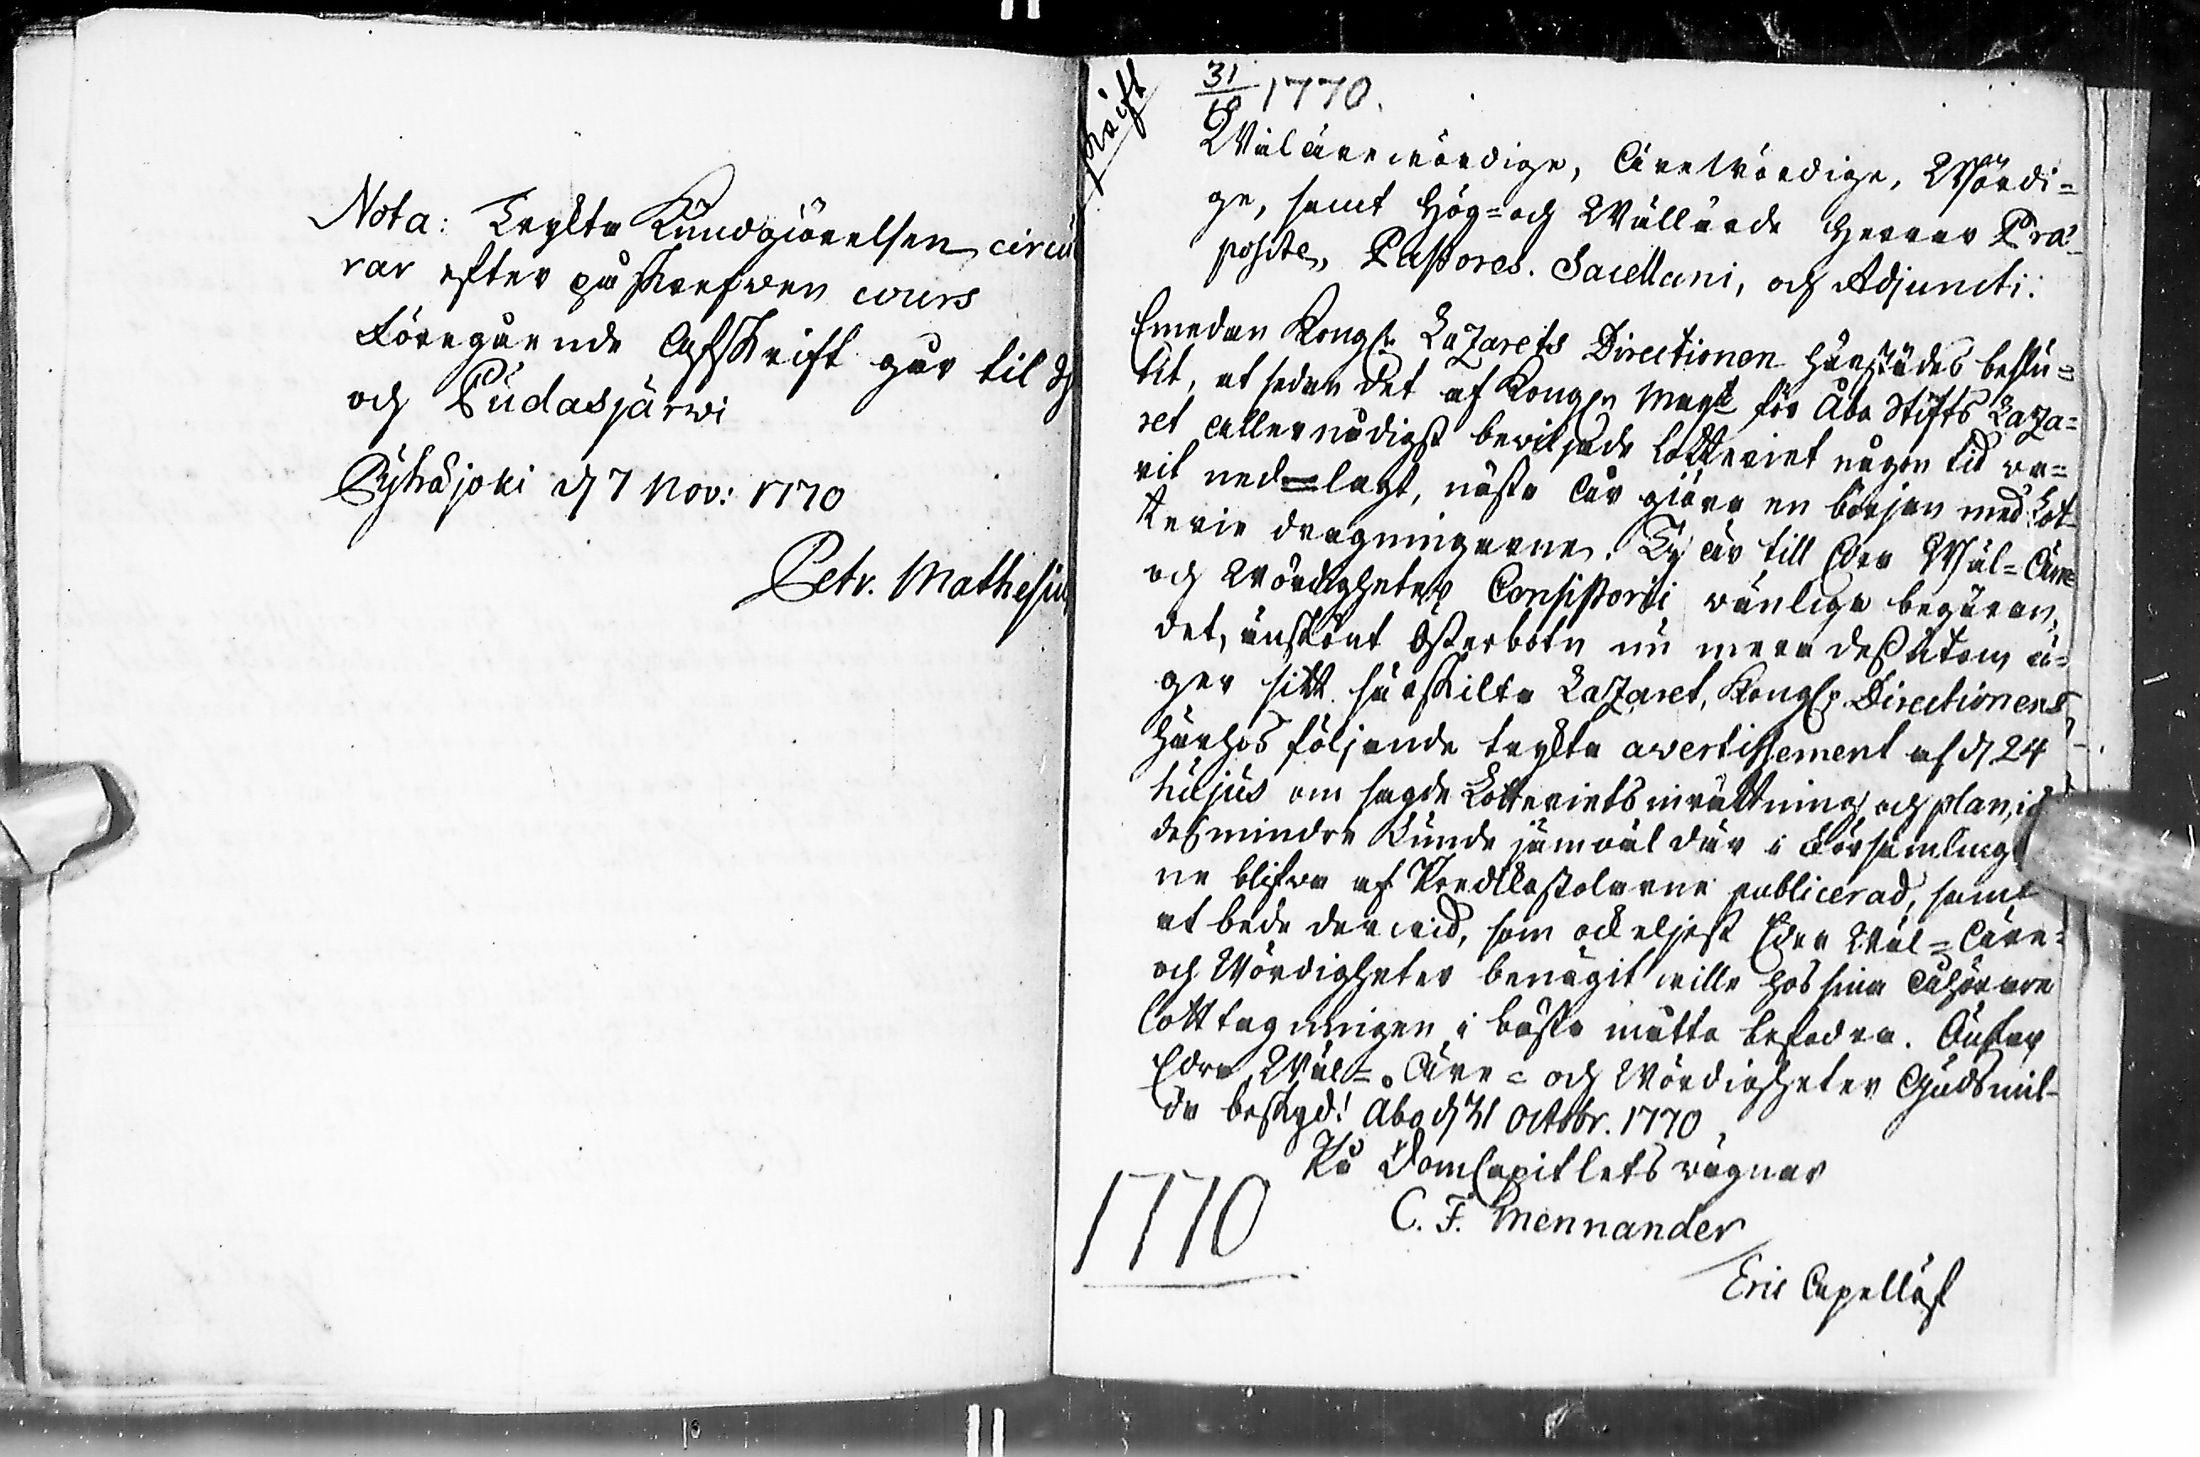 Nota: Tryckta Kundgiörelsen circu
rar efter påskrefven cours
Föregående Afskrift går til
och Pudasjärwi
Pyhäjoki d 7 Nov: 1770
Petr. Mathesiu
31/10 1770.
Wälärewördige, Ärewördige, Wördi=
ge, samt Hög= och Wällärde Herrar Præ=
posite, Pastores. Sacellani, och Adjuncti:
Emedan Kongl. Lazarets Directionen härstädes beslu=
tit, at sedan det af Kongl. Maijt för Åbo Stifts Laza=
ret allernådigst beviljade Lotteriet någon tid va=
rit ned=lagt, nästa år giöra en början med Lot=
terie dragningarne. Ty är till Eder Wäl= Äre=
och Wördigheter Consistorii wänliga begäran,
det, änskönt Österbotn nu mera dessutom ä=
ger sitt särskilta Lazaret, Kongl. Directionens
härhos följande tryckta avertissement af d 24
hujus om sagde Lotteriets inrättning och plan, ic
desmindre kunde jämväl där i Församling
ne blifva af Predikostolarne publicerad, samt
at bede dervid, som ock eljest Eder Wäl= Äre=
och Wördigheter benägit wille hos sina Åhörare
lott tagningen i bästa måtto befodra. Önskar
Edra Wäl= Äre= och Wördigheter Guds mil=
da beskyd! Åbo d 31 Octobr. 1770
På DomCapitlets vägnar
C. F. Mennander
1770
Eric Capellæs